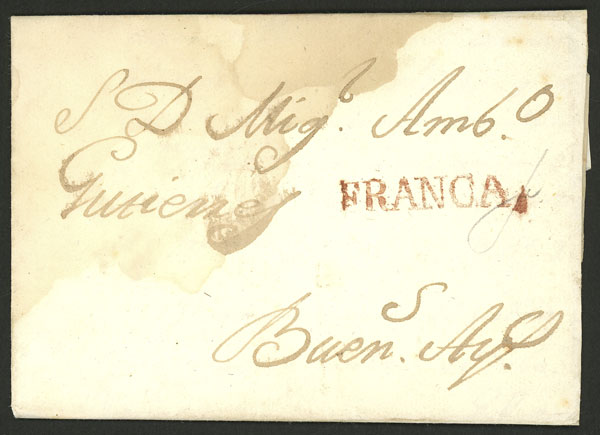 S D Mig.l Amb.o
Gutierrez FRANCA
Buen.s Ay.s